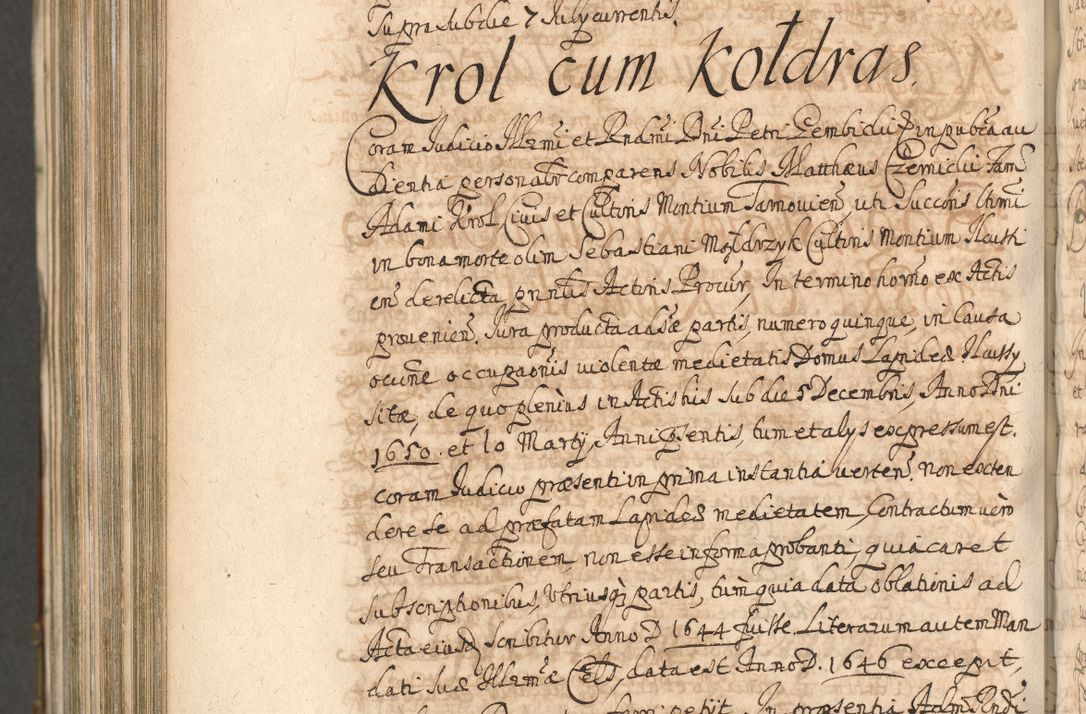 Supra sub die 7 July currentis.
Krol cum Kołdras.
Coram Judicio Illrmi et Rndmi Dni Petri Gembicki Ep in publca au
dientia personalr comparens Nobilis Matthæus Czernicki Fam
Adami Krol, Civis et Cultoris Montium Tarnovien, uti Succons Ulmi
in bona morte olim Sebastiani Mozdrzyk Cultoris Montium Ilcussi
en derelicta, pnntis Actoris Procur, In termino horno ex Actis
provenien. Jura producta adsæ partis, numero quinque, in Causa
ocune occupaonis violentæ medietatis Domus Lapideæ Ilcussy
sitæ, de quo plenius in Actis his sub die 5 Decembris, Anno Dni
1650. et 10 Marty, Anni psentis, tum et alys expressum est.
coram Judicio præsenti in prima instantia verten. non exten
dere se ad præfatam Lapideæ medietatem, Contractum verò
seu Transactionem, non esse in forma probanti, quia caret
subscriptionibus, Utriusq partis, tum quia data oblationis ad
Acta eiusd scribitur Anno D 1644 fuisse. Literarum autem Man
dati suæ Illrmæ Cels, data est Anno D. 1646 excepit,
petijt In præsentia Adm Rndi